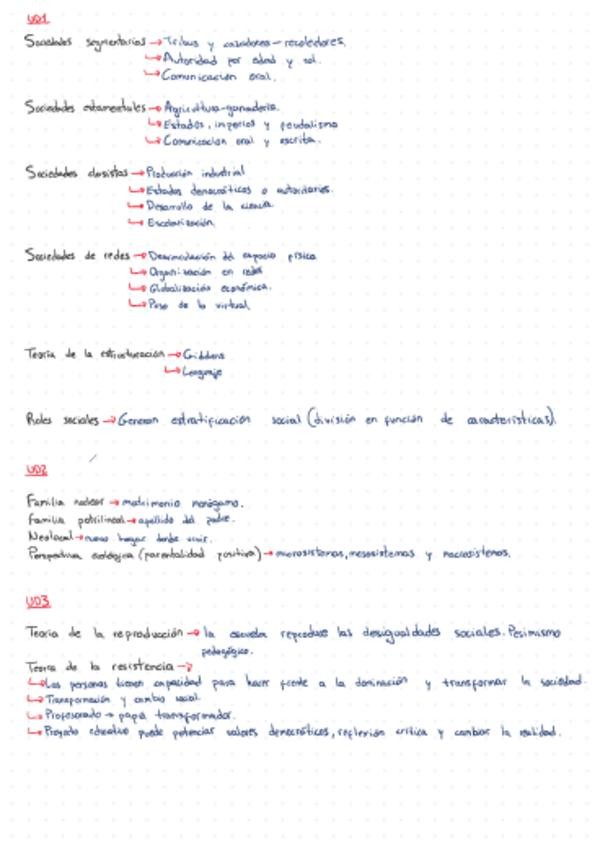 UD1
Sociedades segmentarias → Tribus y cazadores-recolectores.
↳ Autoridad por edad y sol.
↳ Comunicación oral.
Sociedades estamentales → Agricultura-ganadería.
↳ Estados, imperios y feudalismo
↳ Comunicación oral y escrita.
Sociedades clasistas → Producción industrial
↳ Estados democráticos o autoritarios.
↳ Desarrollo de la ciencia.
↳ Escolarización.
Sociedades de redes → Desvinculación del espacio físico
↳ Organización en redes
↳ Globalización económica.
↳ Peso de lo virtual.
Teoría de la estructuración → Giddens
↳ Lenguaje
Roles sociales → Generan estratificación social (división en función de características).
UD2
Familia nuclear → matrimonio monógamo.
Familia patrilineal → apellido del padre.
Neolocal → nuevo hogar donde vivir.
Perspectiva ecológica (parentalidad positiva) → microsistemas, mesosistemas y macrosistemas.
UD3
Teoría de la reproducción → la escuela reproduce las desigualdades sociales. Pesimismo
pedagógico.
Teoría de la resistencia →
↳ Las personas tienen capacidad para hacer frente a la dominación y transformar la sociedad.
↳ Transformación y cambio social.
↳ Profesorado → papel transformador.
↳ Proyecto educativo puede potenciar valores democráticos, reflexión crítica y cambiar la realidad.